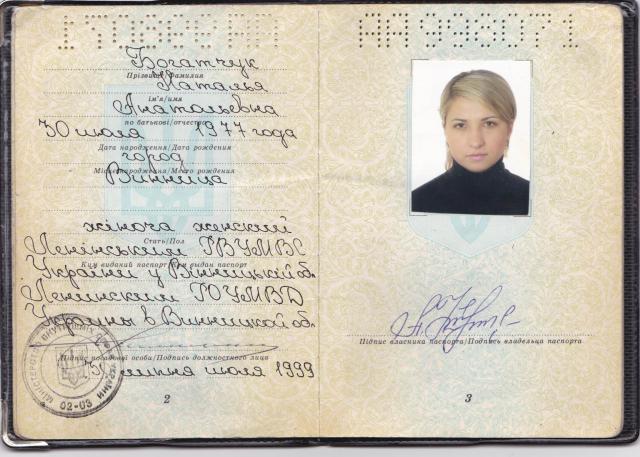 Богатчук
Прізвище/Фамилия
Наталья
ім'я/имя
Анатольевна
по батькові/отчество
30 июля 1977 года
Дата народження/Дата рождения
город
Місце народження/Место рождения
Винница
жіноча женский
Стать/Пол
Ленінським РВУМВС
Ким виданий паспорт/Кем выдан паспорт
України у Вінницькій обл.
Ленинским РОУМВД
Украины в Винницкой обл.
Підпис посадової особи/Подпись должностного лица
липня июля 1999
02-03
2
АА 999071
Підпис власника паспорта/Подпись владельца паспорта
3